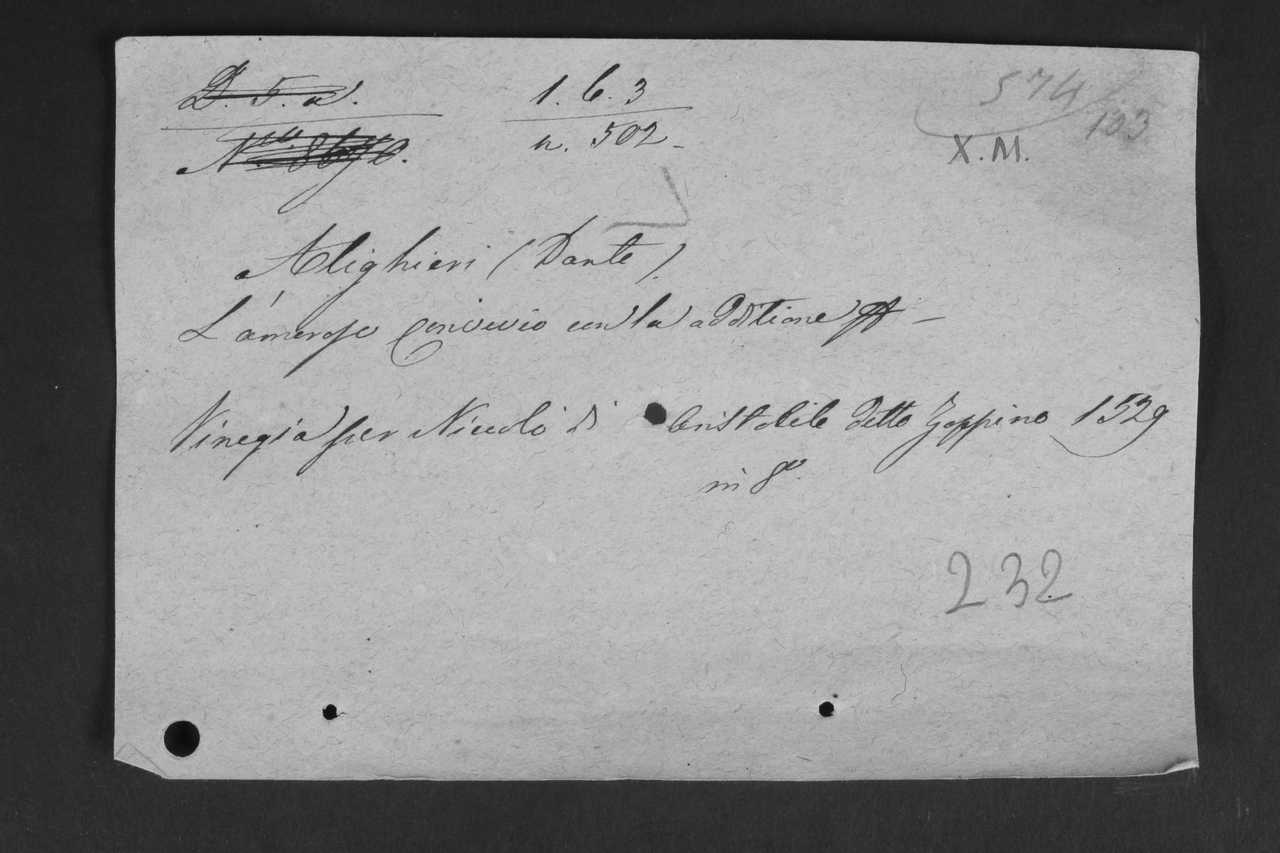 D. 5. a. 1. 6. 3 574
n. 502 103
X. M.
Alighieri (Dante)
L'amoroso Convivio con la additione
Vinegia per Nicolò di Aristotile detto Zoppino 1529
in 8º
232